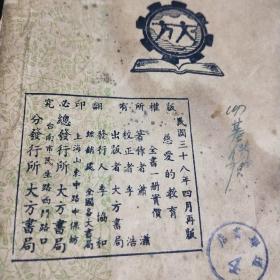 大方
版權所有 翻印必究
民國三十八年四月再版
慈愛的教育
全書一冊實價
著作者 瀟
校正者 李浩
出版者 大方書局
發行人 李協和
經銷處 全國各大書局
上海山東中路中保坊
總發行所 大方書局
台南市民生路西門路口
分發行所 大方書局